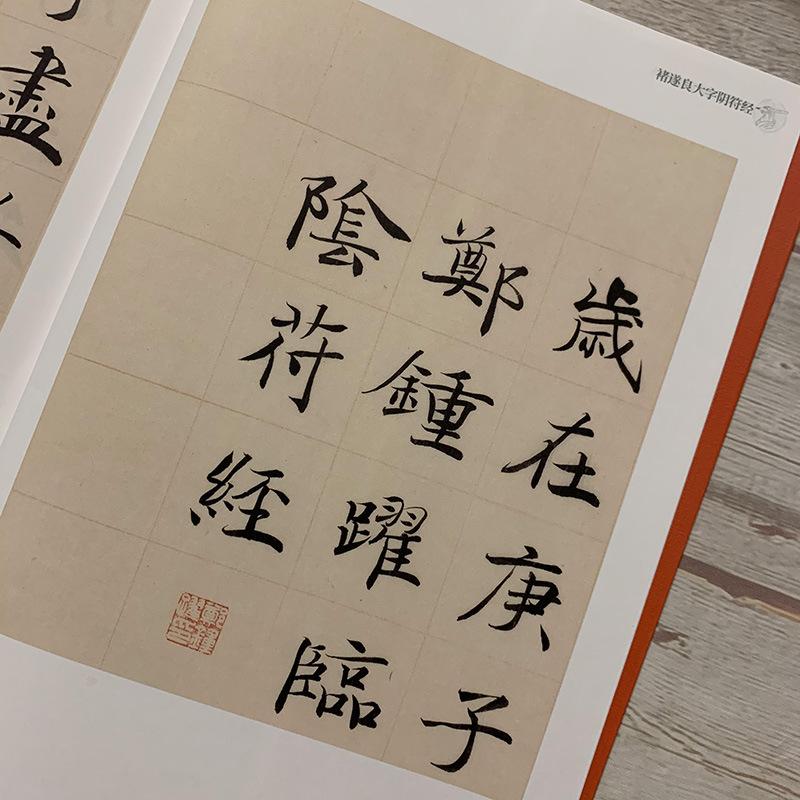 褚遂良大字阴符经
歳在庚子
鄭鍾躍臨
陰符經
盡